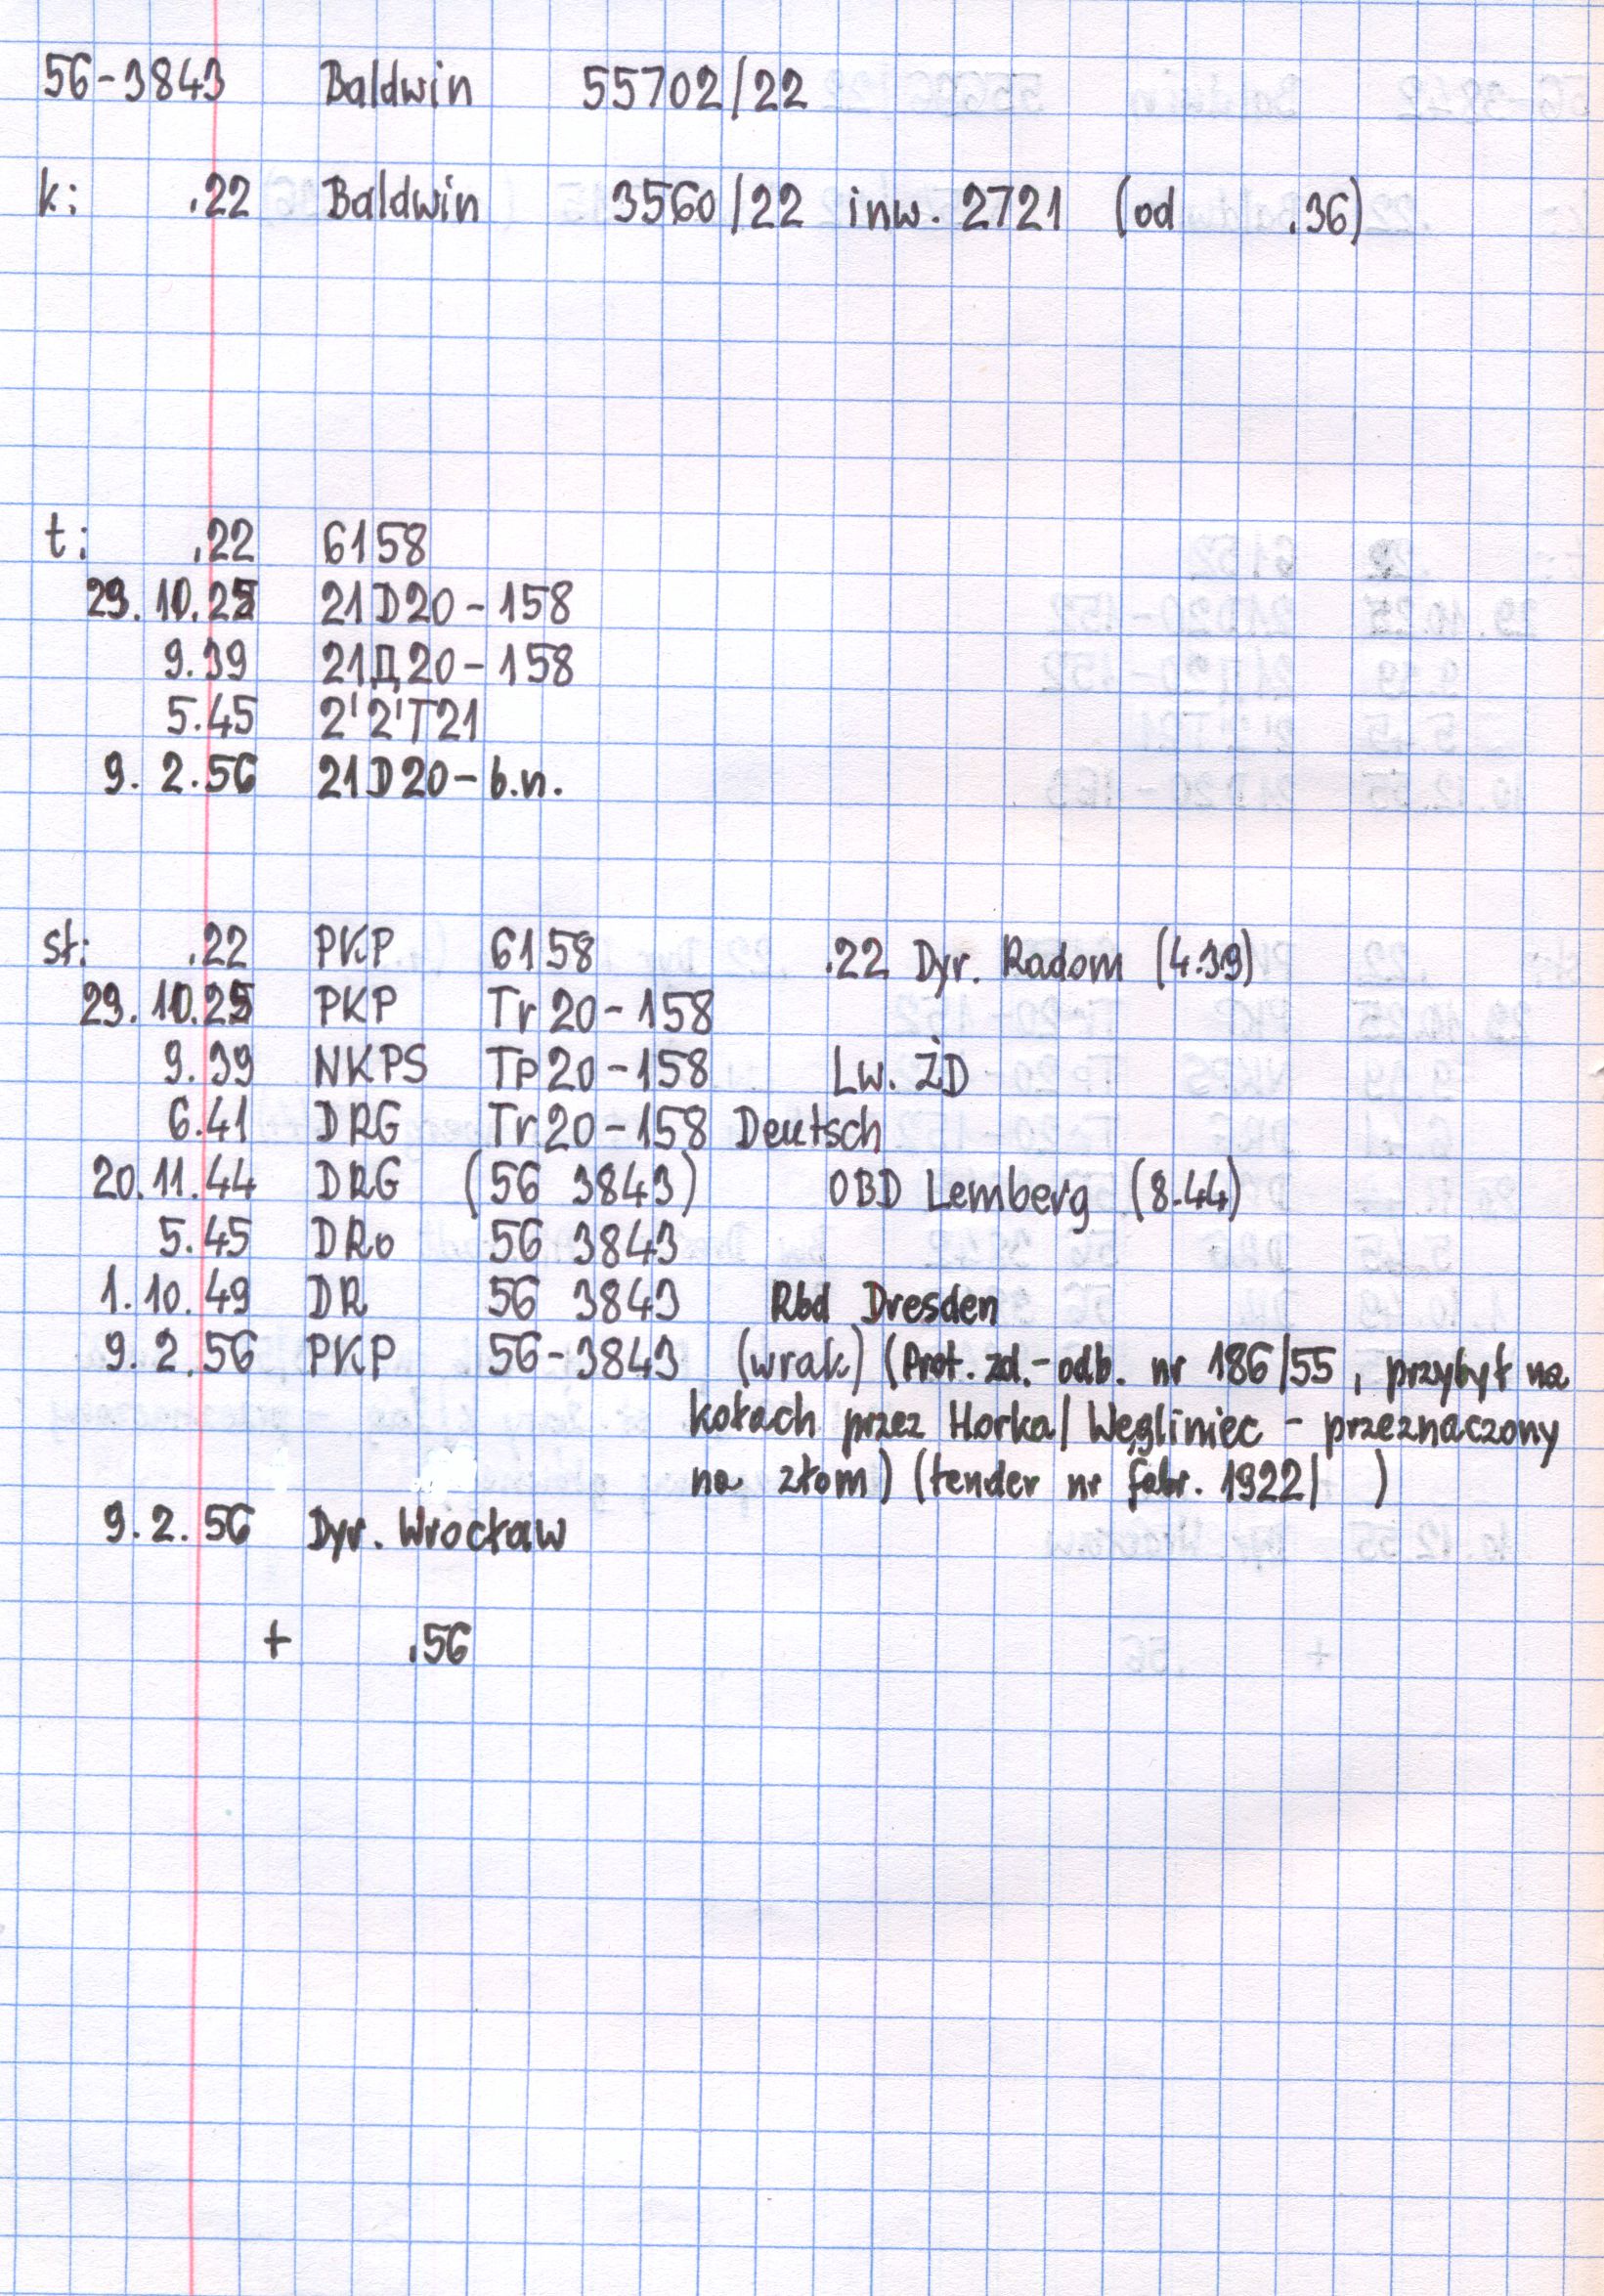 56-3843 Baldwin 55702/22
k: .22 Baldwin 3560/22 inw. 2721 (od .36)
t: .22 6158
29.10.25 21D20-158
9.39 21Д20-158
5.45 2'2'T21
9.2.56 21D20-b.n.
st: .22 PKP 6158 .22 Dyr. Radom (4.39)
29.10.25 PKP Tr20-158
9.39 NKPS Tp20-158 Lw. ŻD
6.41 DRG Tr20-158 Deutsch
20.11.44 DRG (56 3843) OBD Lemberg (8.44)
5.45 DRo 56 3843
1.10.49 DR 56 3843 Rbd Dresden
9.2.56 PKP 56-3843 (wrak) (Prot. zd.-odb. nr 186/55, przybył na
kołach przez Horka/Węgliniec - przeznaczony
na złom) (tender nr fabr. 1922/ )
9.2.56 Dyr. Wrocław
+ .56